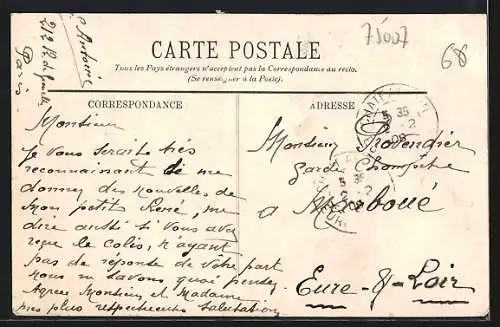 75007
68
Antoine
212 R de Grenelle
Paris
CARTE POSTALE
Tous les Pays étrangers n'acceptent pas la Correspondance au recto.
(Se renseigner à la Poste).
CORRESPONDANCE
ADRESSE
Monsieur
Je vous serais très
reconnaissant de me
donner des nouvelles de
mon petit René, me
dire aussi si vous avez
reçu le colis, n'ayant
pas de réponse de votre part
nous ne savons quoi penser
Agréez Monsieur et Madame
mes plus respectueuses salutations
Monsieur Provendier
Garde Champêtre
a Marboué
Eure-&-Loir
5 35
2 - 2
08
5 35
2 - 2
08